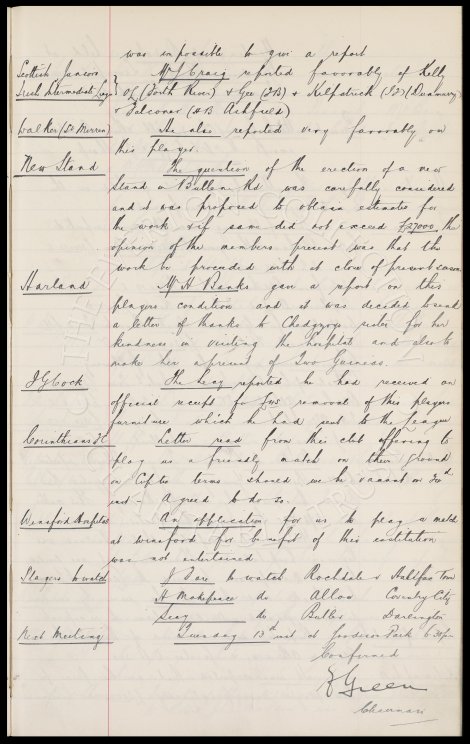 was impossible to give a report
Scottish Juniors Mr J Craig reported favorably of Kelly
Irish Intermediate Leag O.L. (Forth River) & Gee (F.B) & Kilpatrick (I.F) (Dunmurry)
& Falconar (H.B Ashfield)
Walker (St Mirren) He also reported very favorably on
this player.
New Stand The question of the erection of a new
Stand in Bullen Rd was carefully considered
and it was proposed to obtain estimates for
the work & if same did not exceed £27000 the
opinion of the members present was that the
work be proceeded with at close of present season
Harland Mr H Banks gave a report on this
players condition and it was decided to send
a letter of thanks to Chedgzoys sister for her
kindness in visiting the hospital and also to
make her a present of Two Guineas.
J G Cock The Secy reported he had received an
official receipt for removal of this players
furniture which he had sent to the League
Corinthians FC Letter read from this club offering to
play us a friendly match on their ground
on Cup Tie terms should we be vacant on
inst. Agreed to do so.
Winsford Hospital An application for us to play a match
at Winsford for benefit of this institution
was not entertained
Players to watch N Dore to watch Rochdale v Halifax Town
H Makepeace do Allon Coventry City
Secy do Butler Darlington
Next Meeting Tuesday 13th inst at Goodison Park 6.30pm
Confirmed
F Green
Chairman